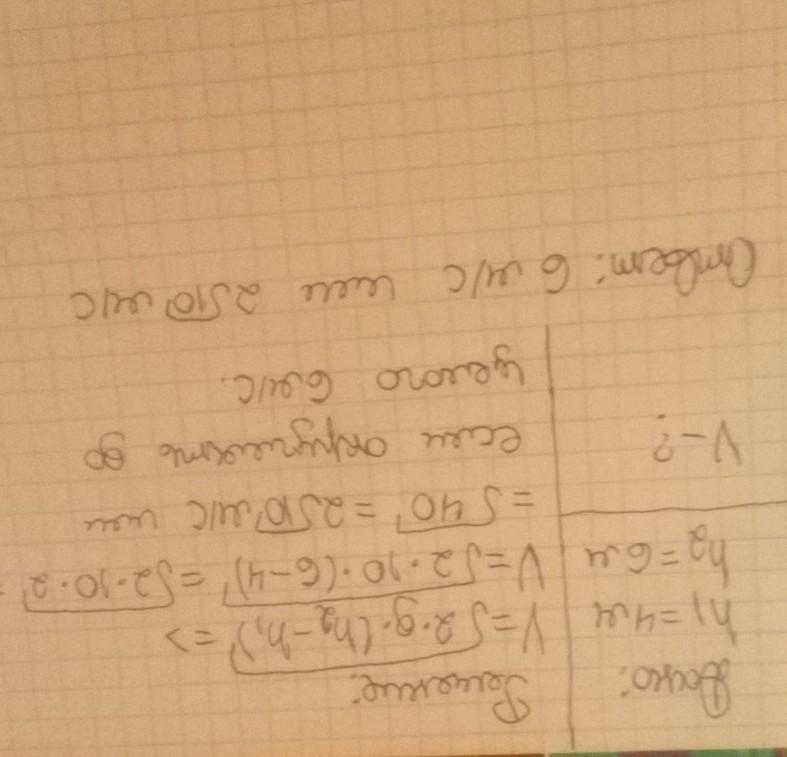 Дано:
h1 = 4м
h2 = 6м
V - ?
Решение:
V = √2·g·(h2-h1) =>
V = √2·10·(6-4) = √2·10·2 =
= √40 = 2√10 м/с или
если округлить до
целого 6м/с.
Ответ: 6 м/с или 2√10 м/с